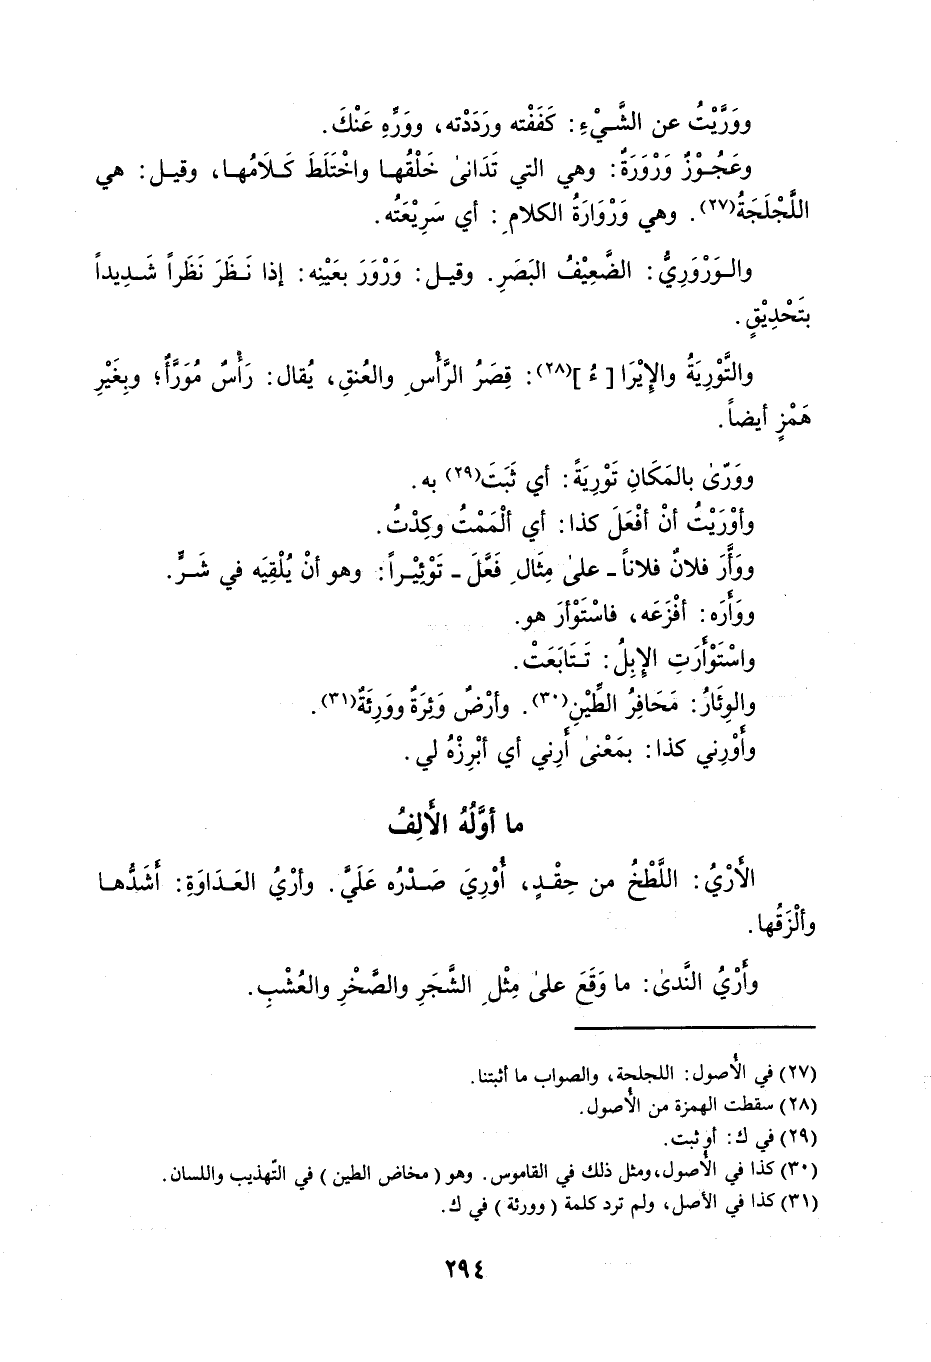 ووَرَّيْتُ عن الشَّيْءِ: كَفَفْته ورَدَدْته، ووَرِّهِ عَنْكَ.
وعَجُوْزٌ وَرْوَرَةٌ: وهي التي تَدَانىٰ خَلْقُها واخْتَلَطَ كَلَامُها، وقيل: هي
اللَّجْلَجَةُ(٢٧). وهي وَرْوَارَةُ الكلامِ: أي سَرِيْعَتُه.
والوَرْوَرِيُّ: الضَّعِيْفُ البَصَرِ. وقيل: وَرْوَرَ بعَيْنِه: إذا نَظَرَ نَظَراً شَدِيداً
بتَحْدِيْقٍ.
والتَّوْرِيَةُ والإِيْرَا [ءُ](٢٨): قِصَرُ الرَّأْسِ والعُنقِ، يُقال: رَأْسٌ مُوَرَّأٌ؛ وبِغَيْرِ
هَمْزٍ أيضاً.
ووَرّىٰ بالمَكَانِ تَوْرِيَةً: أي ثَبَتَ(٢٩) به.
وأَوْرَيْتُ أنْ أفْعَلَ كذا: أي ألْمَمْتُ وكِدْتُ.
ووَأَّرَ فلانٌ فلاناً ـ علىٰ مِثَالِ فَعَّلَ ـ تَوْئِيْراً: وهو أنْ يُلْقِيَه في شَرٍّ.
ووَأَرَه: أفْزَعَه، فاسْتَوْأرَ هو.
واسْتَوْأَرَتِ الإِبِلُ: تَتَابَعَتْ.
والوِئَارُ: مَحَافِرُ الطِّيْنِ(٣٠). وأرْضٌ وَئِرَةٌ ووَرِئَةٌ(٣١).
وأَوْرِني كذا: بمَعْنىٰ أَرِني أي أبْرِزْهُ لي.
ما أوَّلُهُ الأَلِفُ
الأَرْيُ: اللَّطْخُ من حِقْدٍ، أُوْرِيَ صَدْرُه عَلَيَّ. وأرْيُ العَدَاوَةِ: أَشَدُّها
وألْزَقُها.
وأَرْيُ النَّدىٰ: ما وَقَعَ علىٰ مِثْلِ الشَّجَرِ والصَّخْرِ والعُشْبِ.
(٢٧) في الأصول: اللجلحة، والصواب ما أثبتنا.
(٢٨) سقطت الهمزة من الأصول.
(٢٩) في ك: أو ثبت.
(٣٠) كذا في الأصول، ومثل ذلك في القاموس. وهو (مخاض الطين) في التّهذيب واللسان.
(٣١) كذا في الأصل، ولم ترد كلمة (وورئة) في ك.
٢٩٤